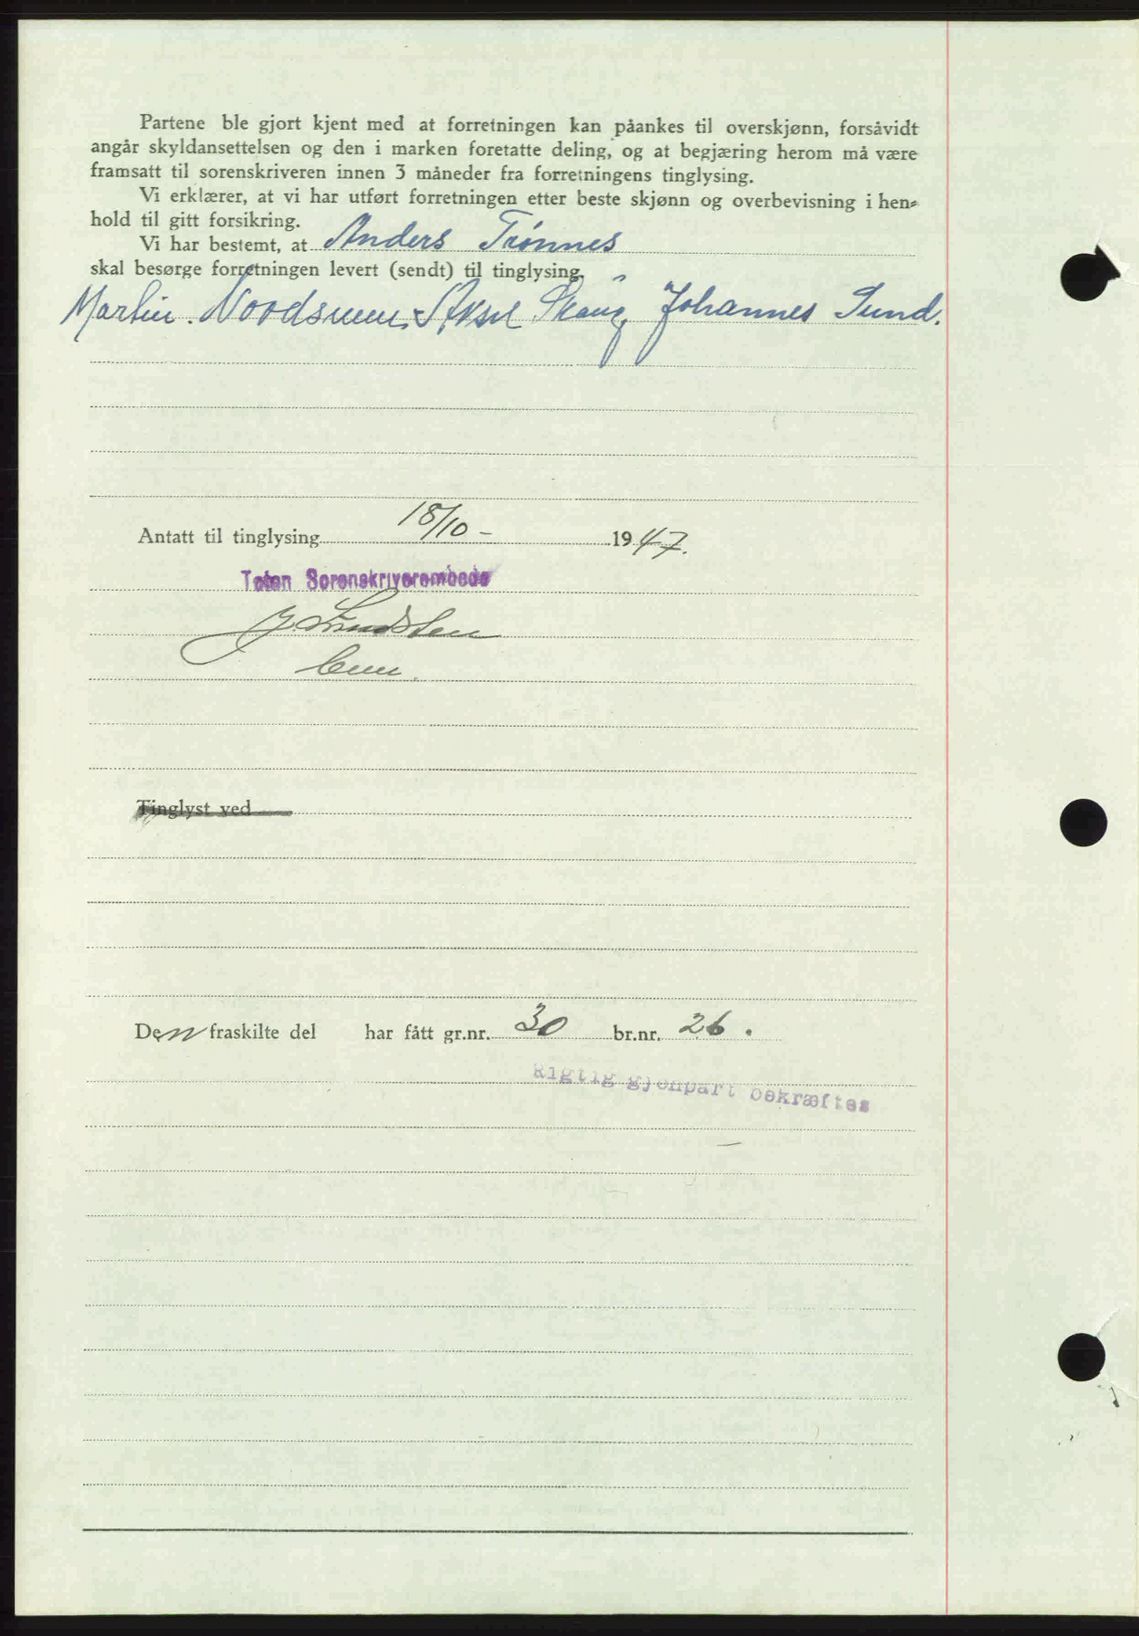 Partene ble gjort kjent med at forretningen kan påankes til overskjønn, forsåvidt
angår skyldansettelsen og den i marken foretatte deling, og at begjæring herom må være
framsatt til sorenskriveren innen 3 måneder fra forretningens tinglysing.
Vi erklærer, at vi har utført forretningen etter beste skjønn og overbevisning i hen-
hold til gitt forsikring.
Vi har bestemt, at Anders Trønnes
skal besørge forretningen levert (sendt) til tinglysing.
Martin Nordsveen. Aksel Skaug. Johannes Sund.
Antatt til tinglysing 18/10 - 1947.
Toten Sorenskriverembede
Tinglyst ved
Den fraskilte del har fått gr.nr. 30 br.nr. 26.
Rigtig gjenpart bekræftes